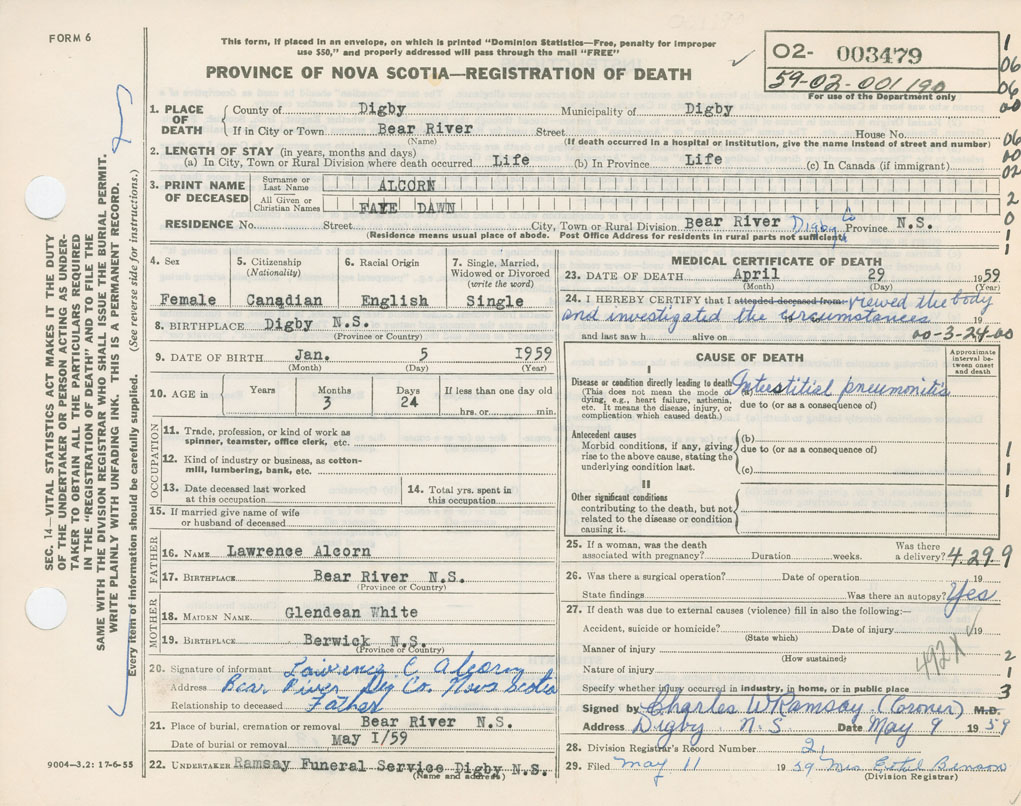 FORM 6
This form, if placed in an envelope, on which is printed "Dominion Statistics—Free, penalty for improper
use $50," and properly addressed will pass through the mail "FREE"
PROVINCE OF NOVA SCOTIA—REGISTRATION OF DEATH
02- 003479
59-02-001190
For use of the Department only
1
06
06
00
06
00
02
2
0
1
1
SEC. 14—VITAL STATISTICS ACT MAKES IT THE DUTY
OF THE UNDERTAKER OR PERSON ACTING AS UNDER-
TAKER TO OBTAIN ALL THE PARTICULARS REQUIRED
IN THE "REGISTRATION OF DEATH" AND TO FILE THE
SAME WITH THE DIVISION REGISTRAR WHO SHALL ISSUE THE BURIAL PERMIT.
WRITE PLAINLY WITH UNFADING INK. THIS IS A PERMANENT RECORD.
Every item of information should be carefully supplied. (See reverse side for instructions.)
1. PLACE OF DEATH
County of Digby Municipality of Digby
If in City or Town Bear River Street House No.
(Name) (If death occurred in a hospital or institution, give the name instead of street and number)
2. LENGTH OF STAY (in years, months and days)
(a) In City, Town or Rural Division where death occurred Life (b) In Province Life (c) In Canada (if immigrant)
3. PRINT NAME OF DECEASED
Surname or Last Name ALCORN
All Given or Christian Names FAYE DAWN
RESIDENCE No. Street City, Town or Rural Division Bear River Digby Co Province N.S.
(Residence means usual place of abode. Post Office Address for residents in rural parts not sufficient)
4. Sex
Female
5. Citizenship
(Nationality)
Canadian
6. Racial Origin
English
7. Single, Married,
Widowed or Divorced
(write the word)
Single
8. BIRTHPLACE Digby N.S.
(Province or Country)
9. DATE OF BIRTH Jan. 5 1959
(Month) (Day) (Year)
10. AGE in
Years
Months
3
Days
24
If less than one day old
hrs. or min.
OCCUPATION
11. Trade, profession, or kind of work as
spinner, teamster, office clerk, etc.
12. Kind of industry or business, as cotton-
mill, lumbering, bank, etc.
13. Date deceased last worked
at this occupation
14. Total yrs. spent in
this occupation
15. If married give name of wife
or husband of deceased
FATHER
16. NAME Lawrence Alcorn
17. BIRTHPLACE Bear River N.S.
(Province or Country)
MOTHER
18. MAIDEN NAME Glendean White
19. BIRTHPLACE Berwick N.S.
(Province or Country)
20. Signature of informant Lawrence C Alcorn
Address Bear River Dig Co. Nova Scotia
Relationship to deceased Father
21. Place of burial, cremation or removal Bear River N.S.
Date of burial or removal May 1/59
22. UNDERTAKER Ramsay Funeral Service Digby N.S.
(Name and address)
9004-3.2: 17-6-55
MEDICAL CERTIFICATE OF DEATH
23. DATE OF DEATH April 29 1959
(Month) (Day) (Year)
24. I HEREBY CERTIFY that I attended deceased from: viewed the body
and investigated the circumstances 19
and last saw h alive on 00-3-24-00
CAUSE OF DEATH
Approximate
interval be-
tween onset
and death
I
Disease or condition directly leading to death
(This does not mean the mode of
dying, e.g., heart failure, asthenia,
etc. It means the disease, injury, or
complication which caused death.)
(a) Interstitial pneumonitis
due to (or as a consequence of)
Antecedent causes
Morbid conditions, if any, giving
rise to the above cause, stating the
underlying condition last.
(b)
due to (or as a consequence of)
(c)
1
1
1
II
Other significant conditions
contributing to the death, but not
related to the disease or condition
causing it.
25. If a woman, was the death
associated with pregnancy? Duration weeks. Was there
a delivery? 4.29.9
26. Was there a surgical operation? Date of operation 19
State findings Was there an autopsy? Yes
27. If death was due to external causes (violence) fill in also the following:—
Accident, suicide or homicide? Date of injury 19
(State which)
Manner of injury
(How sustained)
492X
2
Nature of injury
1
Specify whether injury occurred in industry, in home, or in public place 3
Signed by Charles W Ramsay (Croner) M.D.
Address Digby. N.S Date May 9 1959
28. Division Registrar's Record Number 2,
29. Filed May 11 1959 Benson
(Division Registrar)